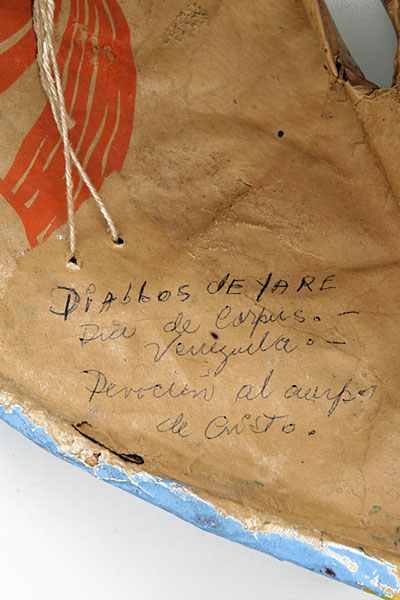 Diabbos de YARE
Dia de Corpus. -
Venezuela. -
Devoción al cuerpo
de Cristo.